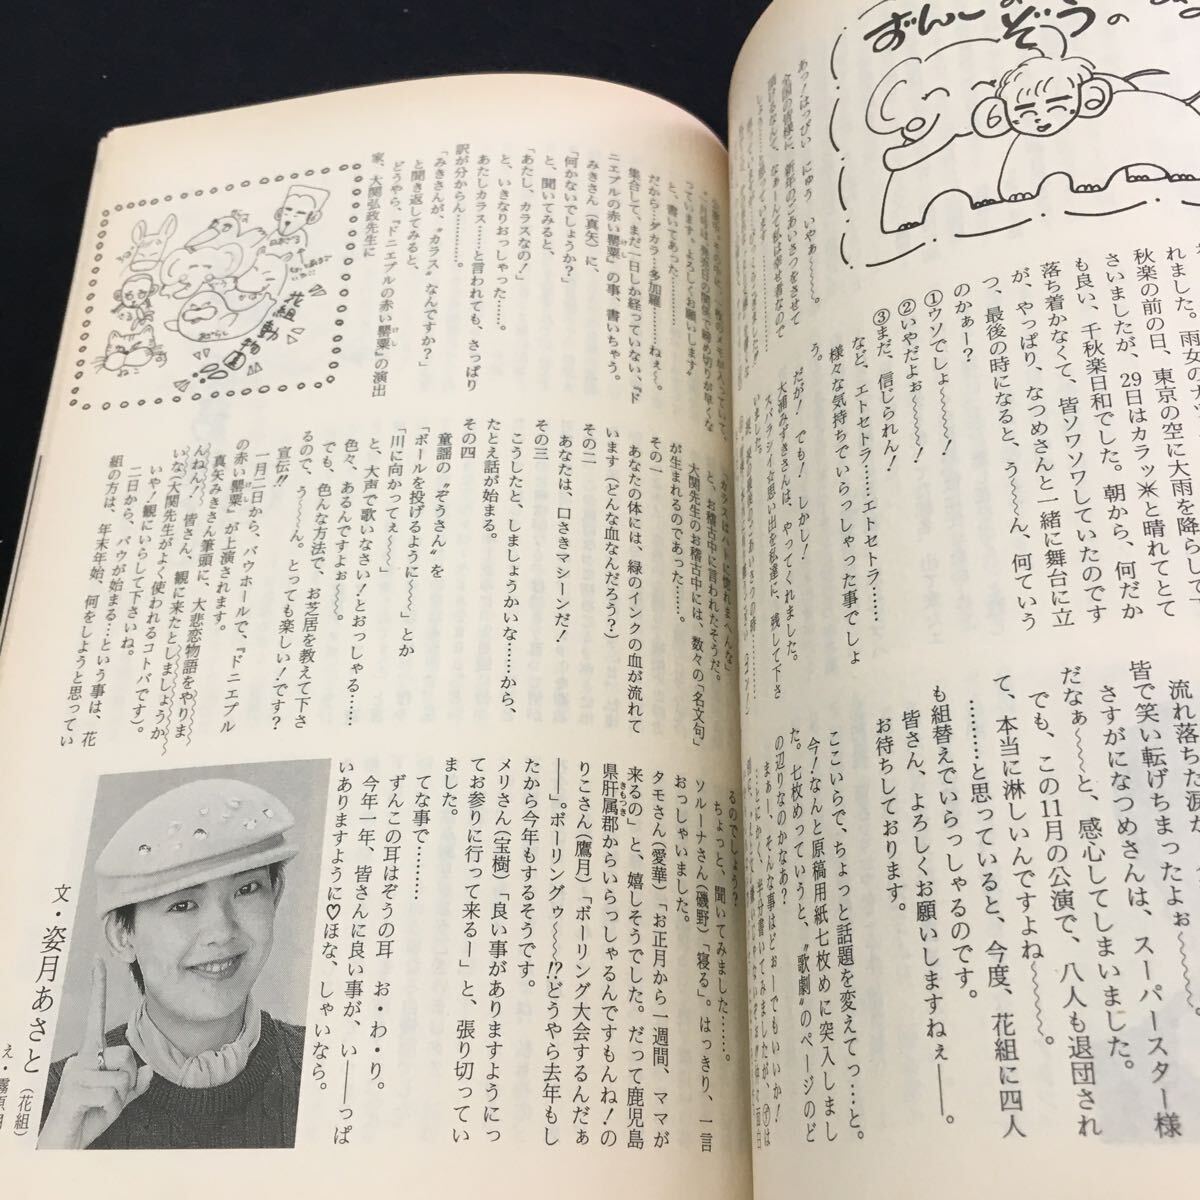 ずんこの
ぞうの
あっ！はっぴい にゅう いやぁ〜〜〜。
全国の皆様に、新年のごあいさつをさせて
頂けるなんて、なぁーんてかは幸せ者なので
①ウソでしょ〜〜〜〜！
②いやだよぉ〜〜〜〜！
③まだ、信じられん！
など、エトセトラ……エトセトラ……
様々な気持ちでいらっしゃった事でしょ
う。
だが！ でも！ しかし！
大浦みずきさんは、やってくれました。
スバラシイ☆思い出を私達に、残して下さ
いました。
れました。雨女のナツ
秋楽の前の日、東京の空に大雨を降らして下
さいましたが、29日はカラッ☀と晴れてとて
も良い、千秋楽日和でした。朝から、何だか
落ち着かなくて、皆ソワソワしていたのです
が、やっぱり、なつめさんと一緒に舞台に立
つ、最後の時になると、う〜〜ん、何ていう
のかぁー？
流れ落ちた涙が
皆で笑い転げちまったよぉ〜〜〜
さすがになつめさんは、スーパースター様
だなぁ〜〜〜と、感心してしまいました。
でも、この11月の公演で、八人も退団され
て、本当に淋しいんですよね〜〜〜。
………と思っていると、今度、花組に四人
も組替えでいらっしゃるのです。
皆さん、よろしくお願いしますねぇ――。
お待ちしております。
ここいらで、ちょっと話題を変えてっ…と。
今！なんと原稿用紙七枚めに突入しまし
た。七枚めっていうと、〝歌劇〟のページのど
の辺りなのかなあ？
まぁー、そんな事はどぉーでもいいか！
っています。よろしくお願いします〟
と、書いてあった……
だから…ダカラ…多加羅……ねぇ〜。
集合して、まだ一日しか経っていない、『ド
ニエプルの赤い罌粟』の事、書いちゃう。
みきさん（真矢）に、
「何かないでしょうか？」
と、聞いてみると、
「あたし、カラスなの！」
と、いきなりおっしゃった……。
あたしカラス……と言われても、さっぱり
訳が分からん……。
「みきさんが、〝カラス〟なんですか？」
と聞き返してみると、
どうやら、『ドニエプルの赤い罌粟』の演出
家、大関弘政先生に
花組動物園
「カラスはハトに惚れまへんな」
と、お稽古中に言われたそうだ。
大関先生のお稽古中には、数々の「名文句」
が生まれるのであった……。
その一
あなたの体には、緑のインクの血が流れて
います（どんな血なんだろう？）
その二
あなたは、口さきマシーンだ！
その三
こうしたと、しましょうかいな……から、
たとえ話が始まる。
その四
童謡の〝ぞうさん〟を
「ボールを投げるように〜〜〜」とか
「川に向かってぇ〜〜〜」
と、大声で歌いなさい！とおっしゃる……
色々、あるんですよぉ〜〜〜。
でも、色んな方法で、お芝居を教えて下さ
るので、う〜〜ん。とっても楽しい！です？
宣伝!!
一月二日から、バウホールで、『ドニエプル
の赤い罌粟』が上演されます。
真矢みきさん筆頭に、大悲恋物語をやりま
んねん！ 皆さん、観に来たとしましょうか
いな（大関先生がよく使われるコトバです）。
いや！観にいらして下さいね。
二日から、バウが始まる…という事は、花
組の方は、年末年始、何をしようと思ってい
るのでしょう？
ちょっと、聞いてみました……。
ソルーナさん（磯野）「寝る」。はっきり、一言
おっしゃいました。
タモさん（愛華）「お正月から一週間、ママが
来るの」と、嬉しそうでした。だって鹿児島
県肝属郡からいらっしゃるんですもんね！の
きもつき
りこさん（鷹月）「ボーリング大会するんだぁ
――」。ボーリングゥ〜〜〜!?どうやら去年もし
たから今年もするそうです。
メリさん（宝樹）「良い事がありますようにっ
てお参りに行って来るー」と、張り切ってい
ました。
てな事で……
ずんこの耳はぞうの耳 お・わ・り。
今年一年、皆さんに良い事が、い――っぱ
いありますように♡ほな、しゃいなら。
文・姿月あさと（花組）